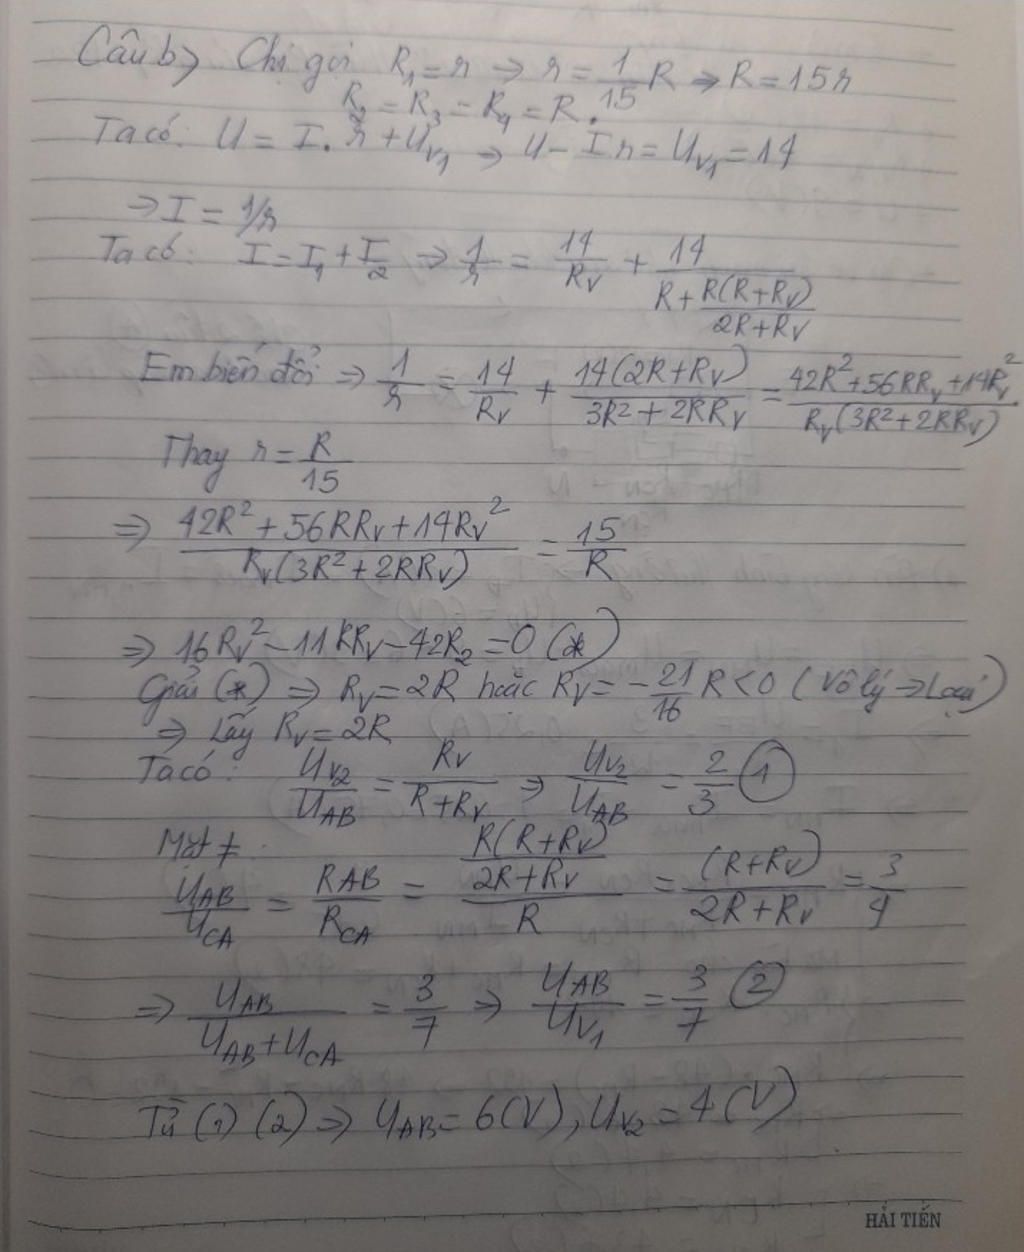 Câu b> Chị gọi R₁ = r → r = 1/15 R → R = 15r
R₂ = R₃ = R₄ = R.
Ta có: U = I. r + U_V₁ → U - Ir = U_V₁ = 14
⇒ I = 1/r
Ta có: I = I₁ + I₂ ⇒ 1/r = 14/R_V + 14/(R + R(R+R_V)/(2R+R_V))
Em biến đổi ⇒ 1/r = 14/R_V + 14(2R+R_V)/(3R² + 2RR_V) = (42R² + 56RR_V + 14R_V²)/(R_V(3R² + 2RR_V))
Thay r = R/15
⇒ (42R² + 56RR_V + 14R_V²)/(R_V(3R² + 2RR_V)) = 15/R
⇒ 16R_V² - 11RR_V - 42R₂ = 0 (*)
Giải (*) ⇒ R_V = 2R hoặc R_V = -21/16 R < 0 (Vô lý → Loại)
⇒ Lấy R_V = 2R
Ta có: U_V₂/U_AB = R_V/(R+R_V) ⇒ U_V₂/U_AB = 2/3 ①
Mặt ≠:
U_AB/U_CA = R_AB/R_CA = (R(R+R_V)/(2R+R_V))/R = (R+R_V)/(2R+R_V) = 3/4
⇒ U_AB/(U_AB+U_CA) = 3/7 ⇒ U_AB/U_V₁ = 3/7 ②
Từ (1) (2) ⇒ U_AB = 6(V), U_V₂ = 4(V)
HẢI TIẾN